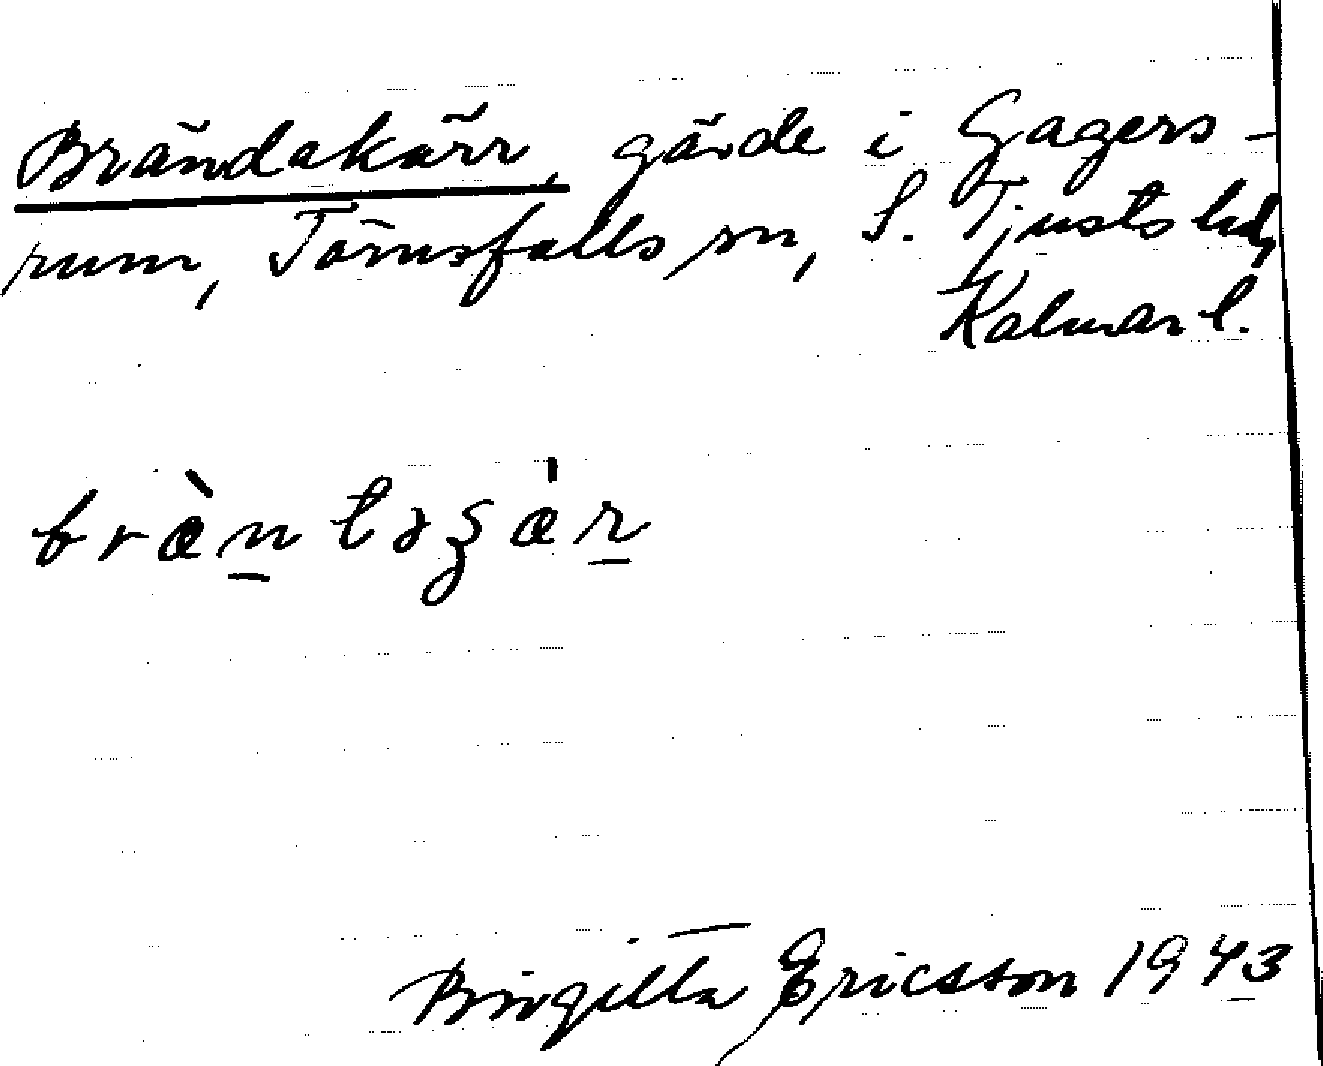 Brändakärr, gärde i Gagers-
rum, Törnsfalls sn, S. Tjusts hd,
Kalmar l.
bræ̀n̲təʒæ̍r̲
Birgitta Ericsson 1943